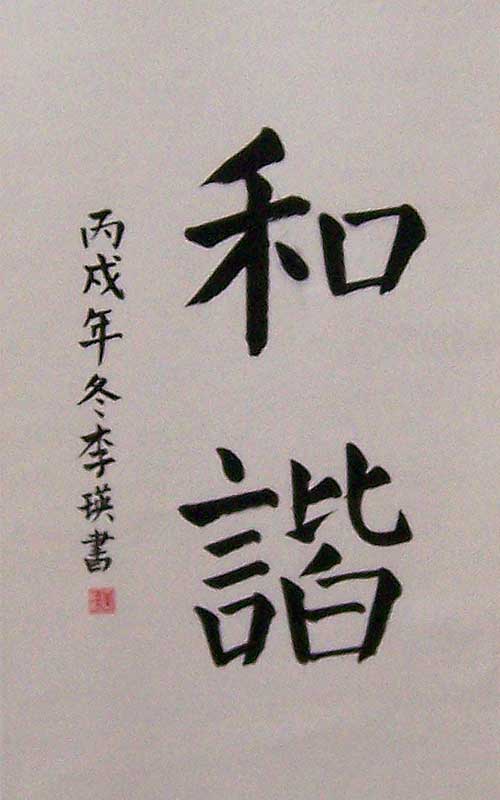 和諧
丙戌年冬李瑛書